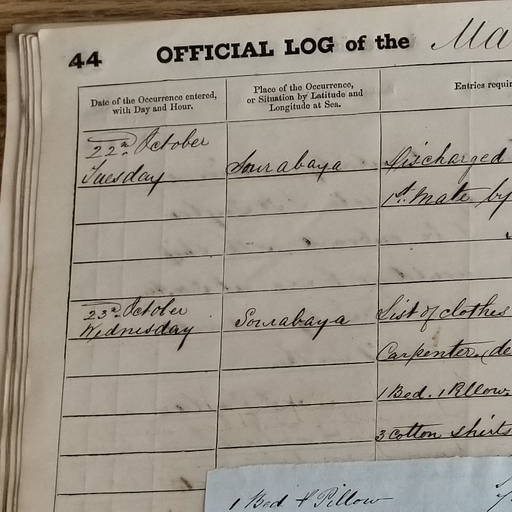 44 OFFICIAL LOG of the Ma
Date of the Occurrence entered, with Day and Hour.
Place of the Occurrence, or Situation by Latitude and Longitude at Sea.
Entries requir
22n October
Tuesday Sourabaya Discharged
1st Mate by
23d October
Wednesday Sourabaya List of clothes
Carpenter, de
1 Bed. 1 Pillow.
3 Cotton shirts
1 Bed & Pillow